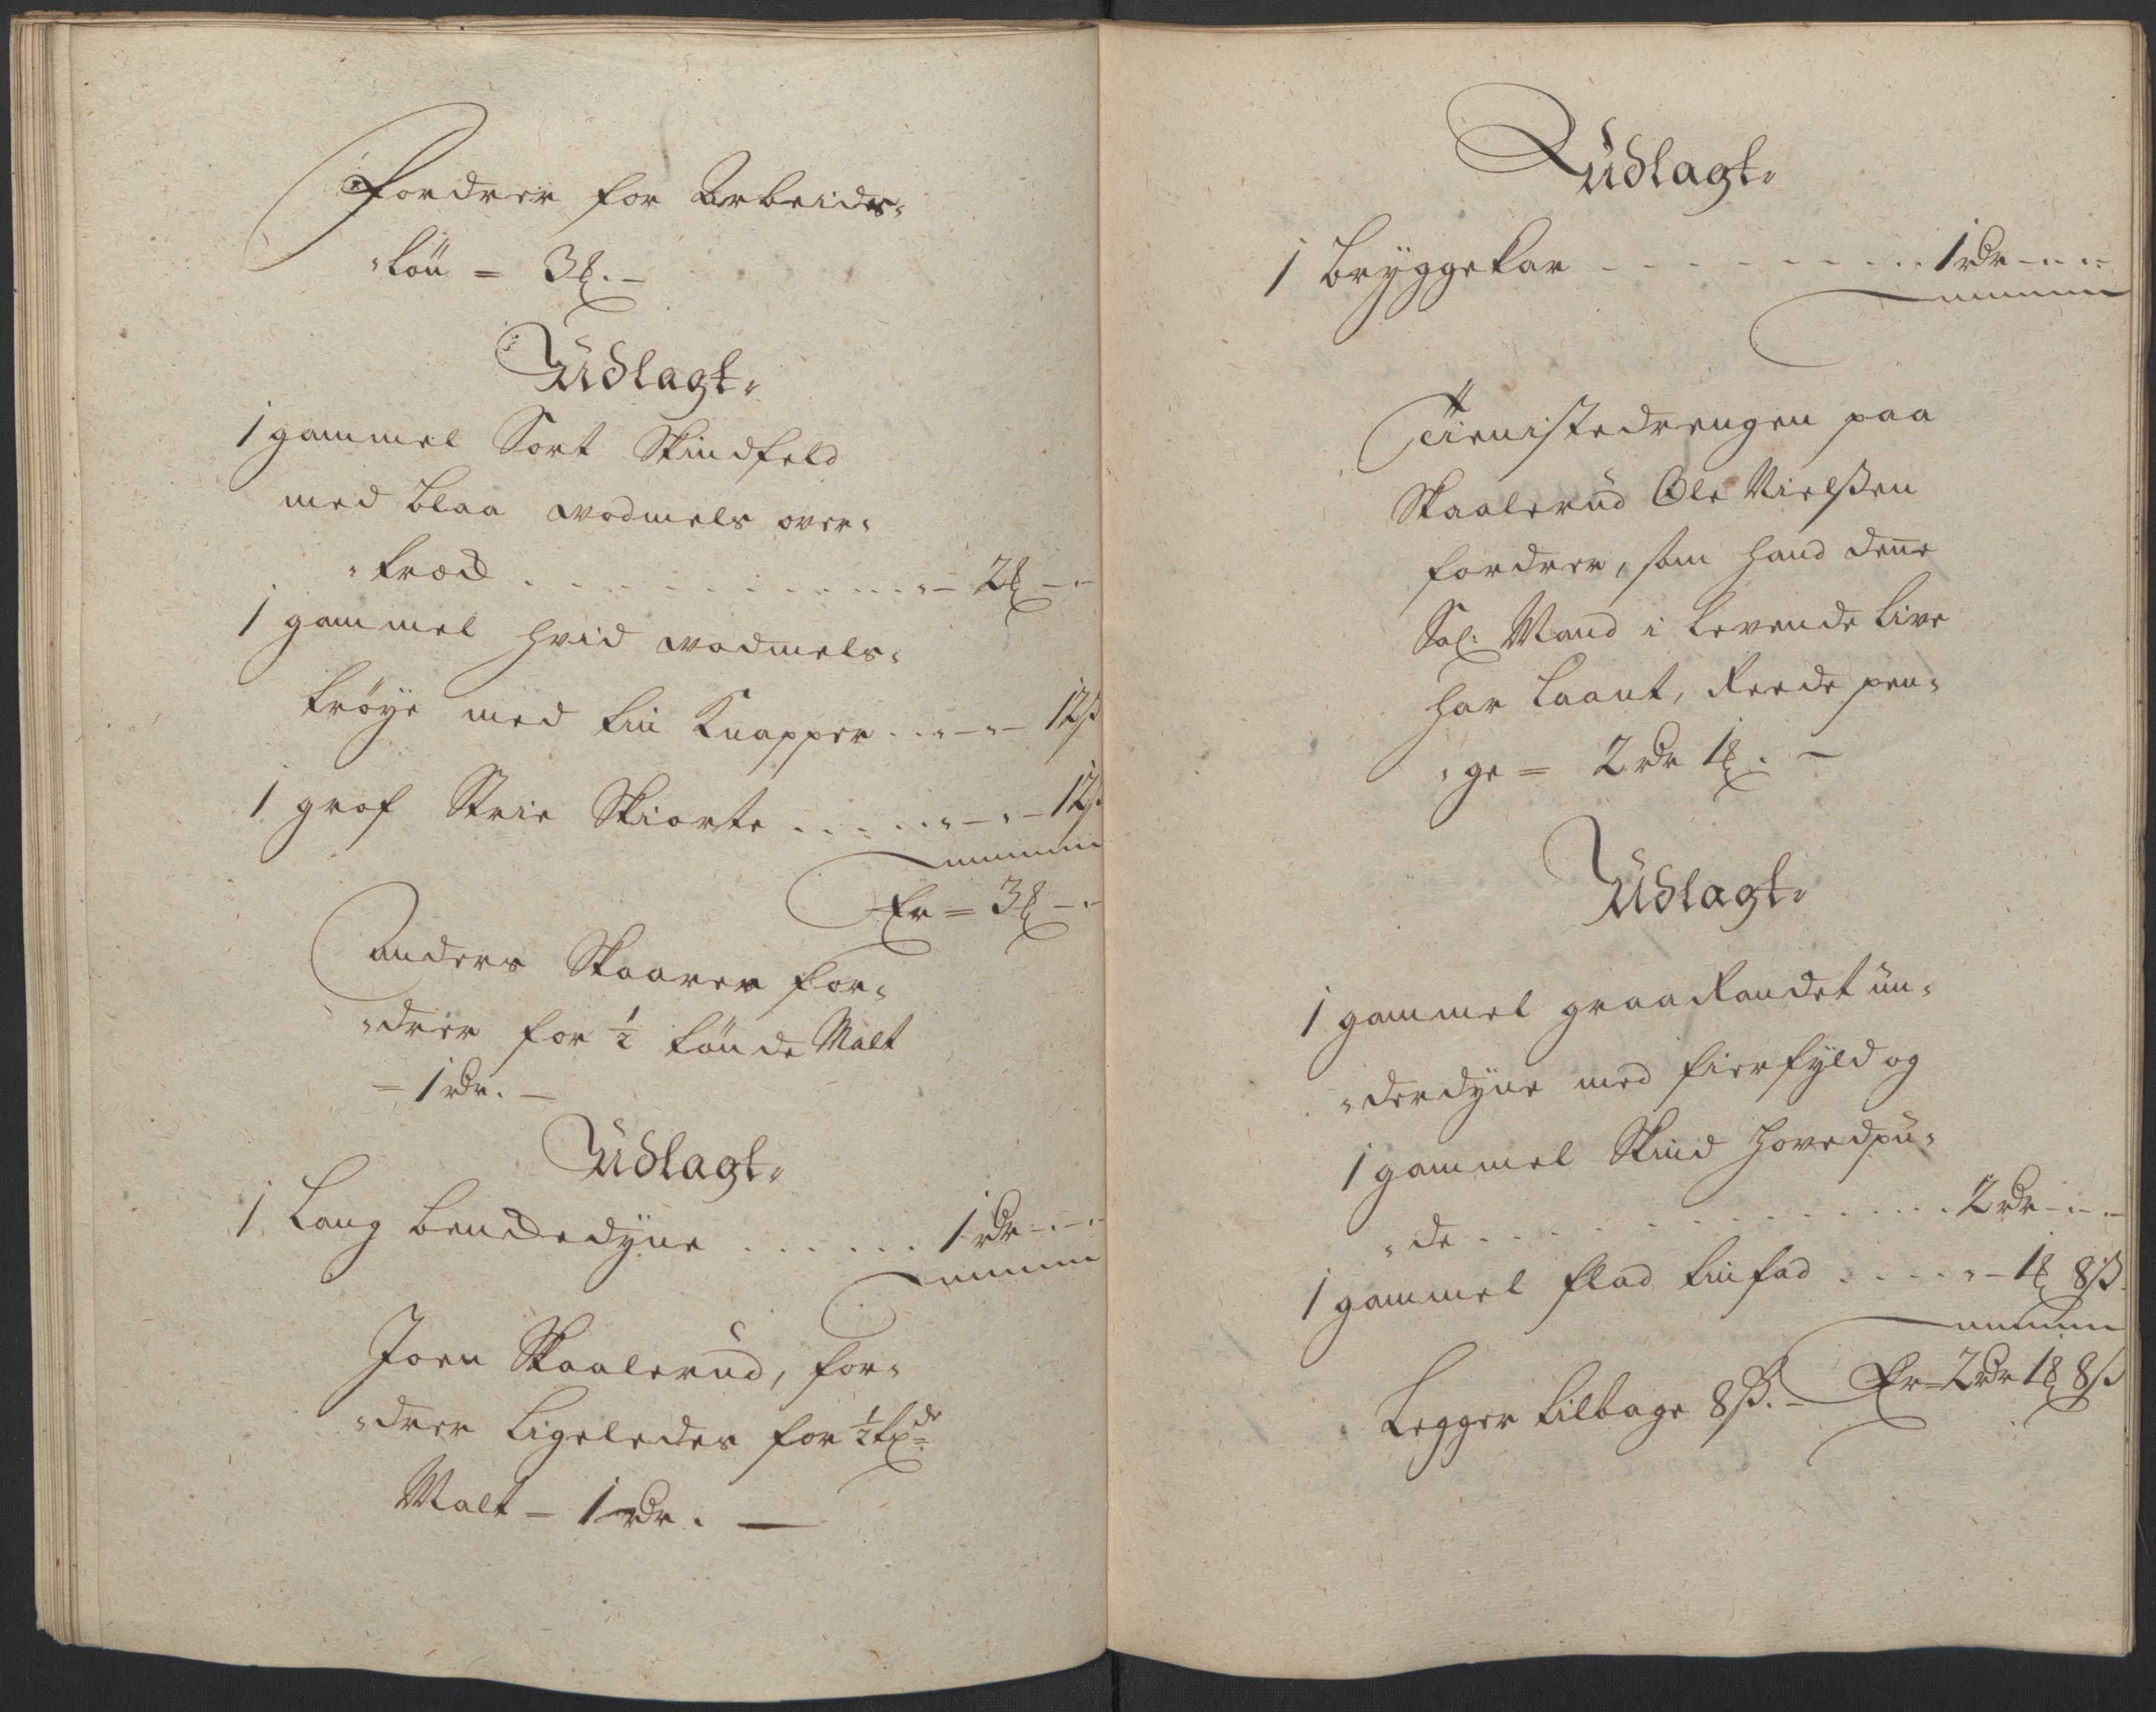 Fordrer for Arbeids-
løn = 3 ₰. -
Udlagt.
1 gammel Sort Skindfeld
med blaa wadmels over-
træd . . . . . . 2 ₰ -
1 gammel hvid wadmels-
trøye med tin Knapper . . . 12 ß
1 grof Strie Skiorte . . . . . 12 ß
Er = 3 ₰ -
Anders Skaarer for-
drer for ½ tønde Malt
= 1 rdr. -
Udlagt.
1 Lang benckedyne . . . . . 1 rdr - . - .
Joen Skaalerud, for-
drer Ligeledes for ½ tde
Malt - 1 rdr. -
Udlagt.
1 bryggekar . . . . . . 1 rdr - . - .
Tienistedrengen paa
Skaalerud Ole Nielßen
fordrer, som hand denne
Sal: Mand i levende live
har laant, Reede pen-
ge = 2 rdr 1 ₰. -
Udlagt.
1 gammel graa Randet un-
derdyne med fierfyld og
1 gammel Skind hovedpu-
de . . . . . . 2 rdr - . - .
1 gammel flad tinfad . . . . . 1 ₰ 8 ß
Er = 2 rdr 1 ₰ 8 ß
Legger tilbage 8 ß. -